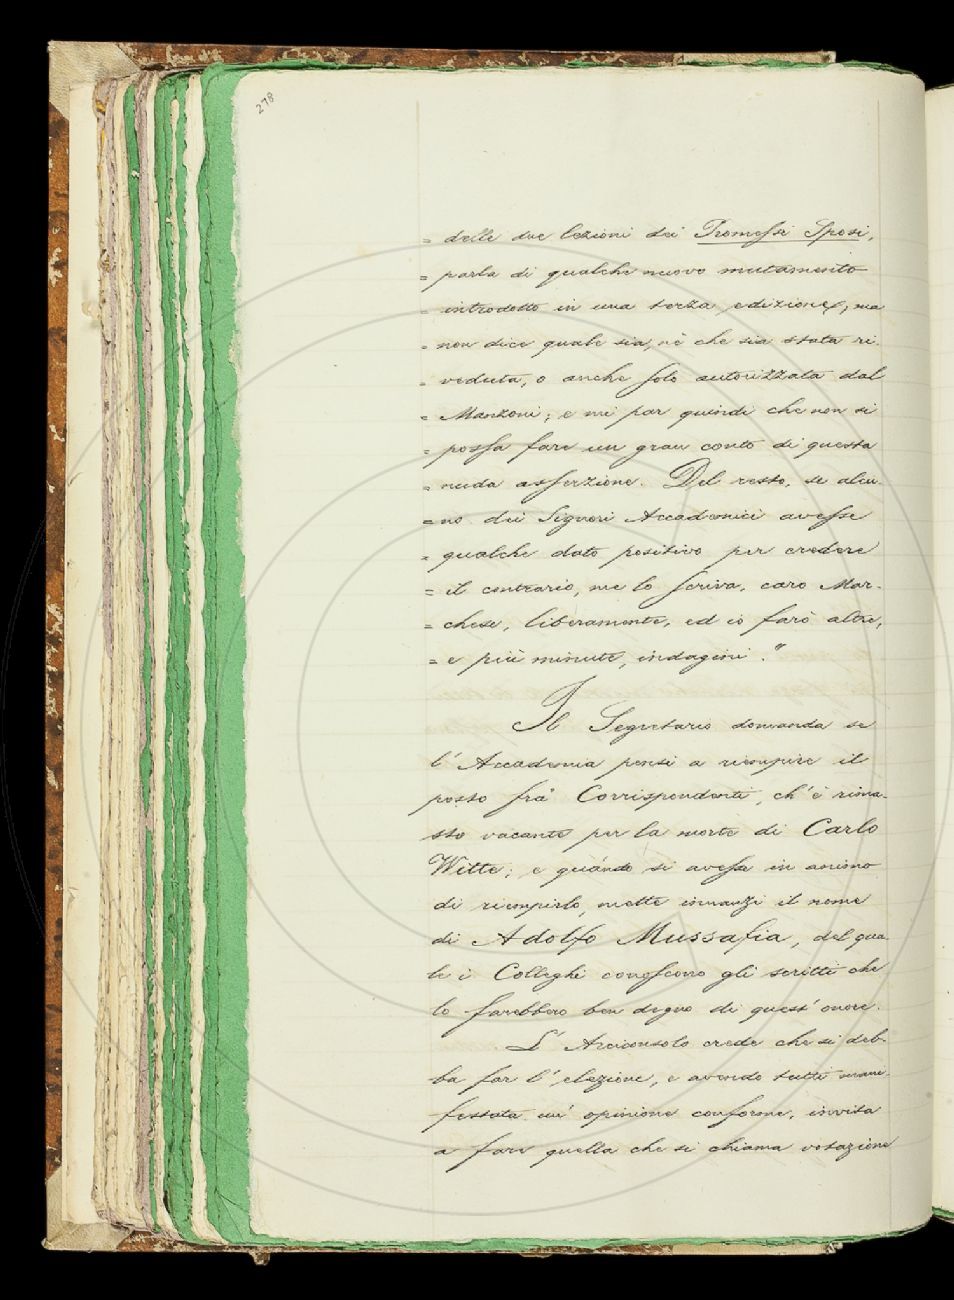 278
= delle due lezioni dei Promessi Sposi,
= parla di qualche nuovo mutamento
= introdotto in una terza edizione, ma
= non dice quale sia, nè che sia stata ri-
= veduta, o anche solo autorizzata dal
= Manzoni; e mi par quindi che non si
= possa fare un gran conto di questa
= nuda asserzione. Del resto, se alcu-
= no dei Signori Accademici avesse
= qualche dato positivo per credere
= il contrario, me lo scriva, caro Mar-
= chese, liberamente, ed io farò altre,
= e più minute, indagini."
Il Segretario domanda se
l'Accademia pensi a riempire il
posto fra' Corrispondenti, ch'è rima-
sto vacante per la morte di Carlo
Witte; e quando si avesse in animo
di riempirlo, mette innanzi il nome
di Adolfo Mussafia, del qua-
le i Colleghi conoscono gli scritti che
lo farebbero ben degno di quest'onore.
L'Arciconsolo crede che si deb-
ba far l'elezione, e avendo tutti mani-
festata un'opinione conforme, invita
a fare quella che si chiama votazione